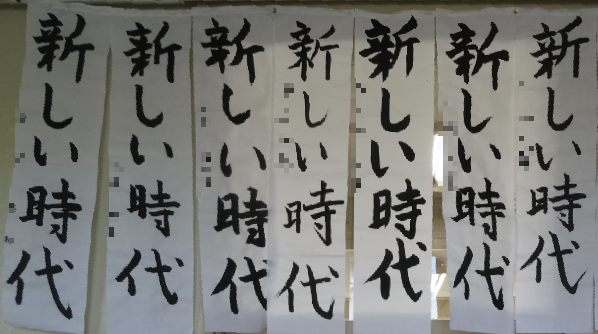 新しい時代
新しい時代
新しい時代
新しい時代
新しい時代
新しい時代
新しい時代